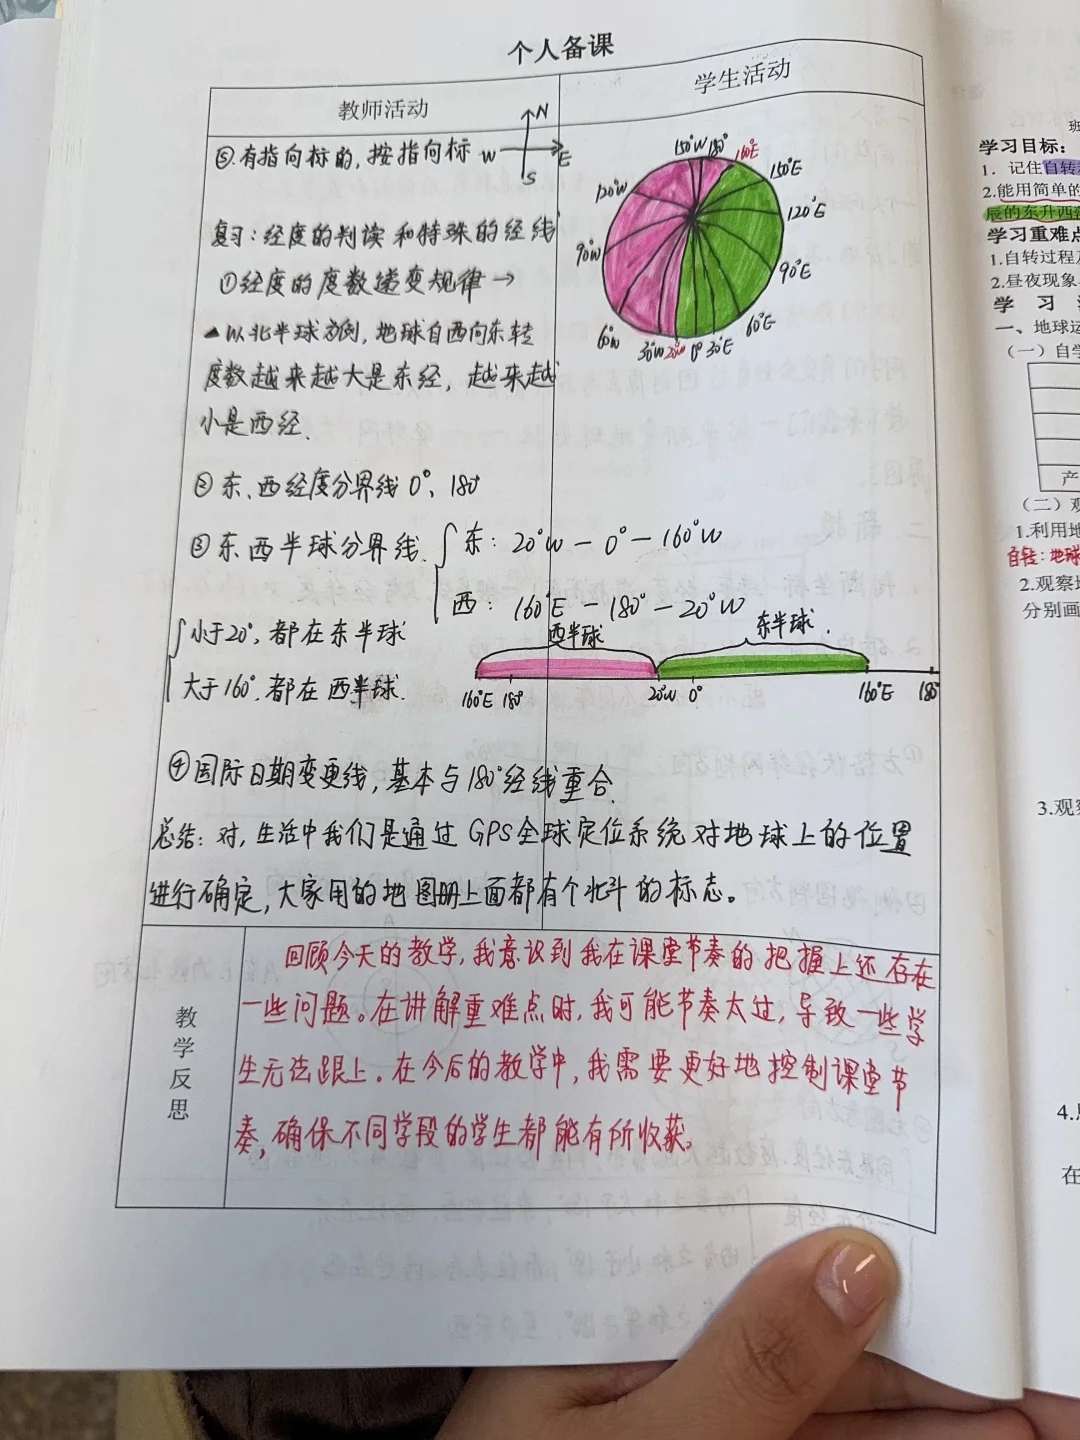 个人备课
教师活动
学生活动
⑤.有指向标的,按指向标
N
W
E
S
150°W 180° 160°E 150°E
120°W
120°E
90°W
90°E
60°W
60°E
30°W 20°W 0° 30°E
复习:经度的判读和特殊的经线
①经度的度数递变规律→
以北半球为例,地球自西向东转
度数越来越大是东经,越来越
小是西经.
②东、西经度分界线0°、180°
③东西半球分界线.
东:20°W-0°-160°W
西:160°E-180°-20°W
小于20°,都在东半球
大于160°.都在西半球.
西半球
东半球.
160°E 180° 20°W 0° 160°E 180°
④国际日期变更线,基本与180°经线重合.
总结:对,生活中我们是通过GPS全球定位系统对地球上的位置
进行确定,大家用的地图册上面都有个北斗的标志。
教学反思
回顾今天的教学,我意识到我在课堂节奏的把握上还存在
一些问题。在讲解重难点时,我可能节奏太过,导致一些学
生无法跟上。在今后的教学中,我需要更好地控制课堂节
奏,确保不同学段的学生都能有所收获。
班
学习目标:
1.记住自转
2.能用简单的
辰的东升西落
学习重难点
1.自转过程及
2.昼夜现象
学 习
一、地球运
(一)自学
产
(二)观
1.利用地
自转:地球
2.观察地
分别画
3.观察
4.
在